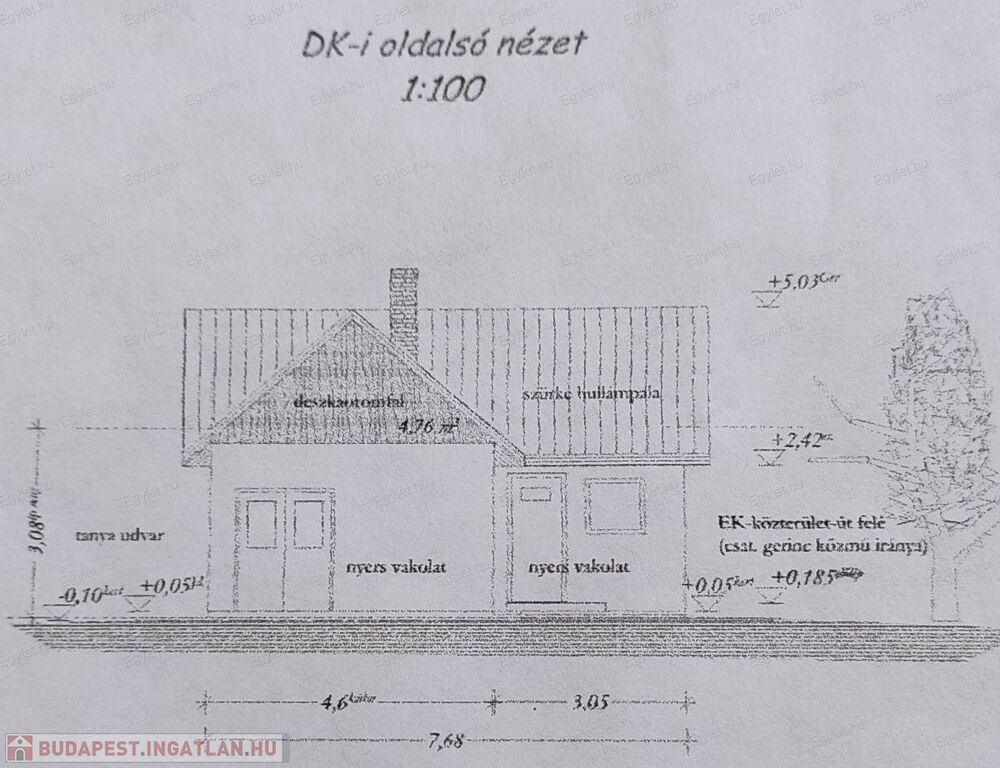 DK-i oldalsó nézet
1:100
+5,03
szürke hullámpala
4,76 m²
+2,42
3,08
tanya udvar
EK-közterület-út felé
(csat. gerinc közmű iránya)
nyers vakolat
nyers vakolat
-0,10
+0,05
+0,05
+0,185
4,6
3,05
7,68
BUDAPEST.INGATLAN.HU
Egylet.hu